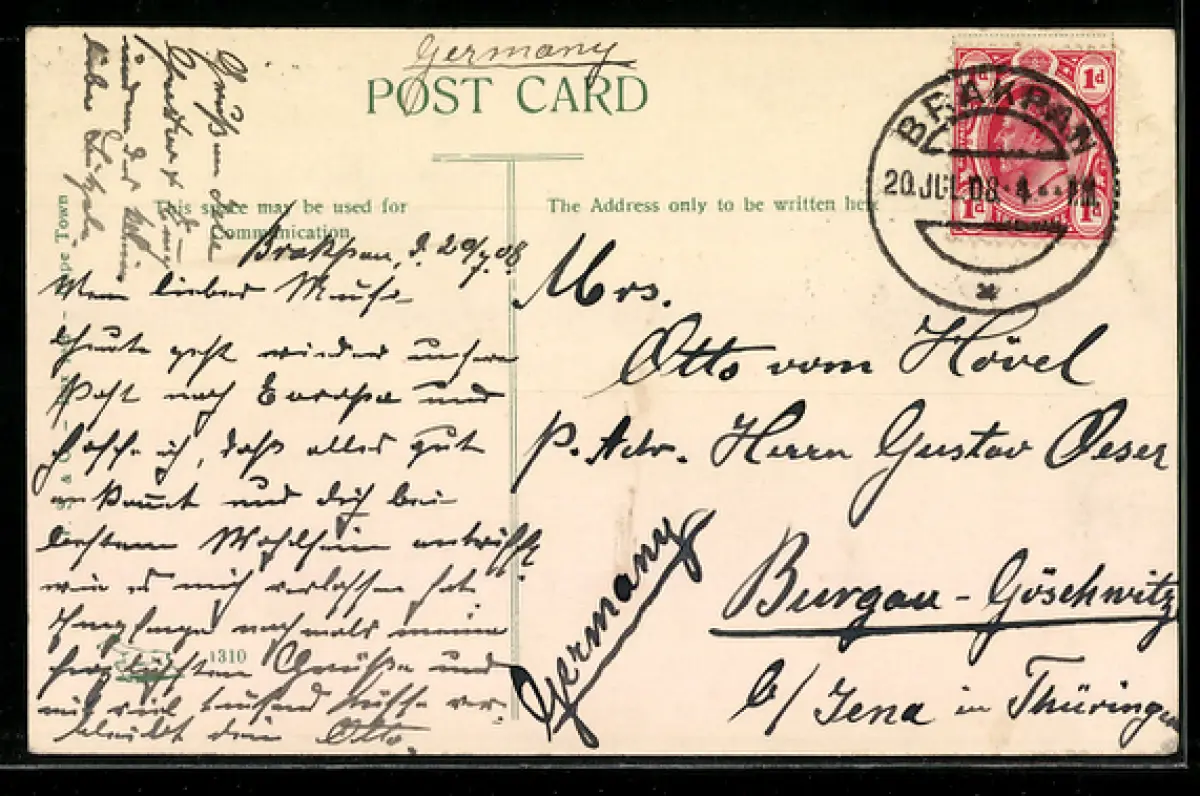 Germany
POST CARD
1d 1d
BRAKPAN
20 JUL 08 · 4 PM
1d 1d
This space may be used for
Communication.
The Address only to be written here
Gruß an
lieber
Cape Town
Brakpan, d. 20/7.08.
Mein lieber
Heute geht wieder unsere
Post nach Europa und
hoffe ich, daß alles gut
ankommt und dich bei
bestem Wohlsein antrifft
wie es mich verlassen hat.
Empfange nochmals meine
herzlichsten Grüße und
mit viel tausend Küsse ver-
bleibt dein Otto.
1310
Mrs.
Otto vom Hövel
p. Adr. Herrn Gustav Oeser
Burgau-Göschwitz
b/ Jena in Thüringen
Germany